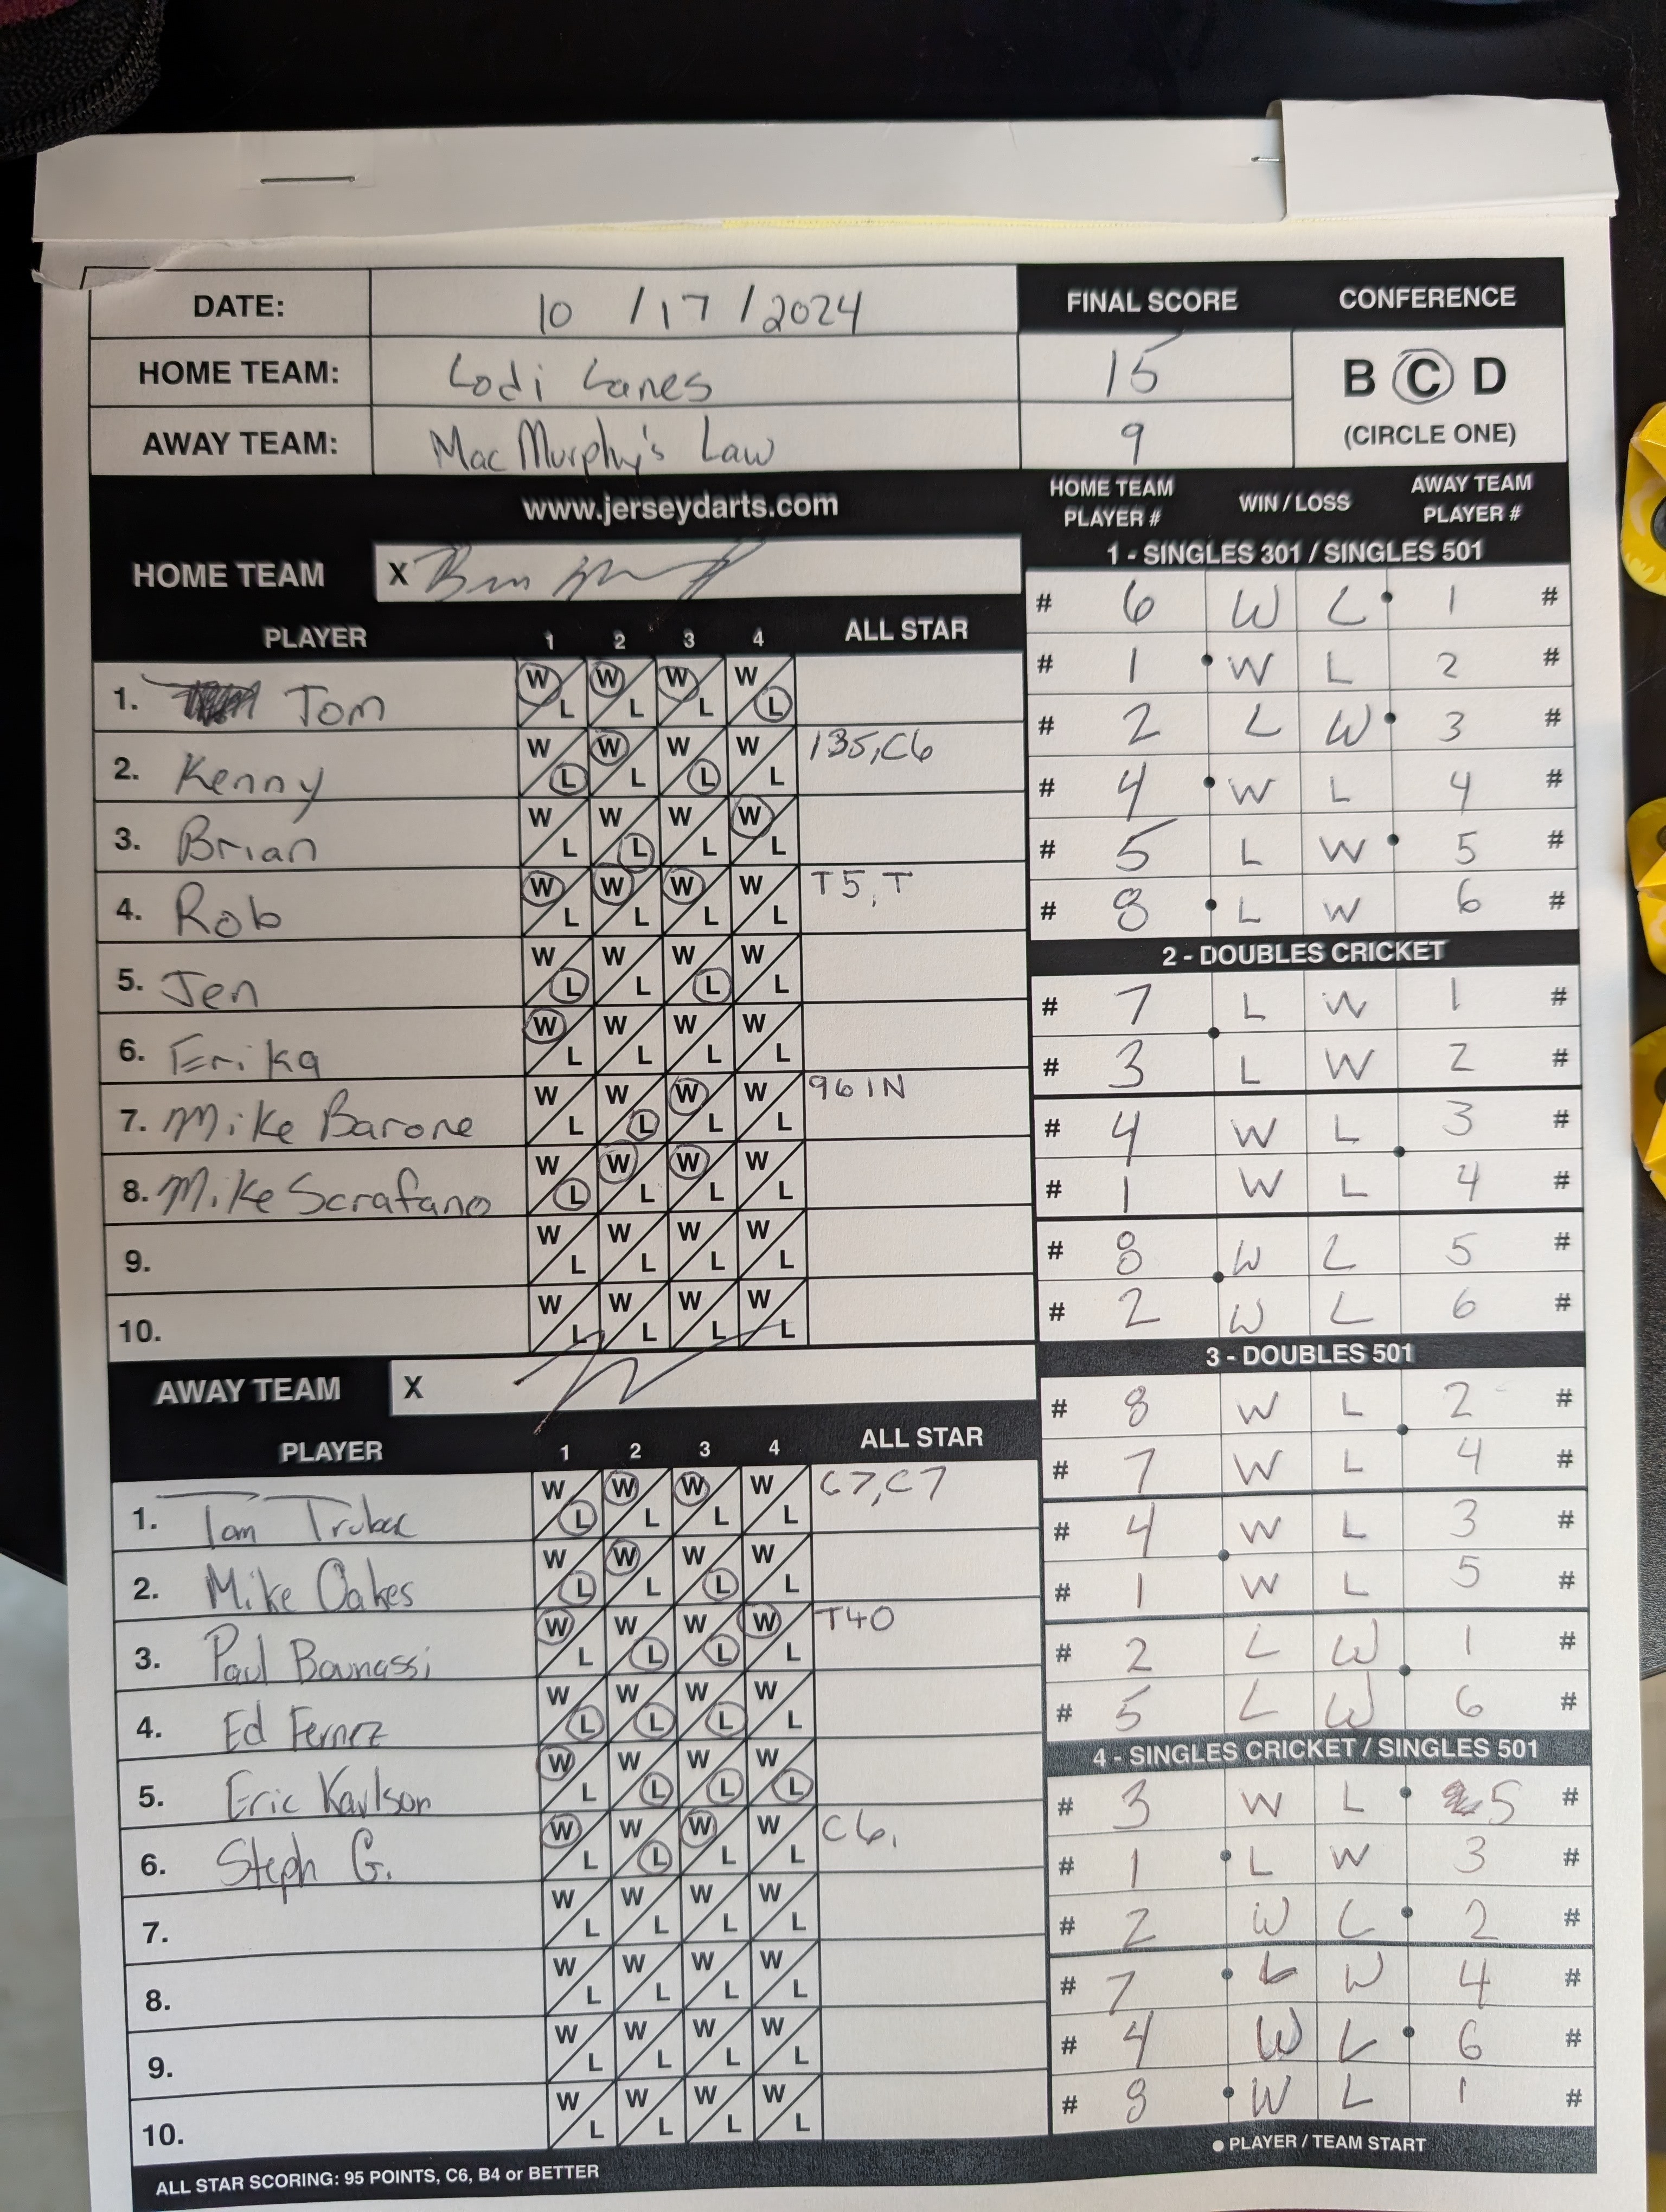 DATE: 10 / 17 / 2024 FINAL SCORE CONFERENCE
HOME TEAM: Lodi Lanes 15 B C D
AWAY TEAM: Mac Murphy's Law 9 (CIRCLE ONE)
www.jerseydarts.com
HOME TEAM X
PLAYER 1 2 3 4 ALL STAR
1. Tom W L W L W L W L
2. Kenny W L W L W L W L 135, C6
3. Brian W L W L W L W L
4. Rob W L W L W L W L T5, T
5. Jen W L W L W L W L
6. Erika W L W L W L W L
7. Mike Barone W L W L W L W L 96 IN
8. Mike Scrafano W L W L W L W L
9. W L W L W L W L
10. W L W L W L W L
AWAY TEAM X
PLAYER 1 2 3 4 ALL STAR
1. Tom W L W L W L W L C7, C7
2. Mike Oakes W L W L W L W L
3. Paul W L W L W L W L T40
4. Ed W L W L W L W L
5. Eric Karlson W L W L W L W L
6. Steph G. W L W L W L W L C6,
7. W L W L W L W L
8. W L W L W L W L
9. W L W L W L W L
10. W L W L W L W L
ALL STAR SCORING: 95 POINTS, C6, B4 or BETTER
HOME TEAM PLAYER # WIN / LOSS AWAY TEAM PLAYER #
1 - SINGLES 301 / SINGLES 501
# 6 W L 1 #
# 1 W L 2 #
# 2 L W 3 #
# 4 W L 4 #
# 5 L W 5 #
# 8 L W 6 #
2 - DOUBLES CRICKET
# 7 L W 1 #
# 3 L W 2 #
# 4 W L 3 #
# 1 W L 4 #
# 8 W L 5 #
# 2 W L 6 #
3 - DOUBLES 501
# 8 W L 2 #
# 7 W L 4 #
# 4 W L 3 #
# 1 W L 5 #
# 2 L W 1 #
# 5 L W 6 #
4 - SINGLES CRICKET / SINGLES 501
# 3 W L 5 #
# 1 L W 3 #
# 2 W L 2 #
# 7 L W 4 #
# 4 W L 6 #
# 8 W L 1 #
PLAYER / TEAM START